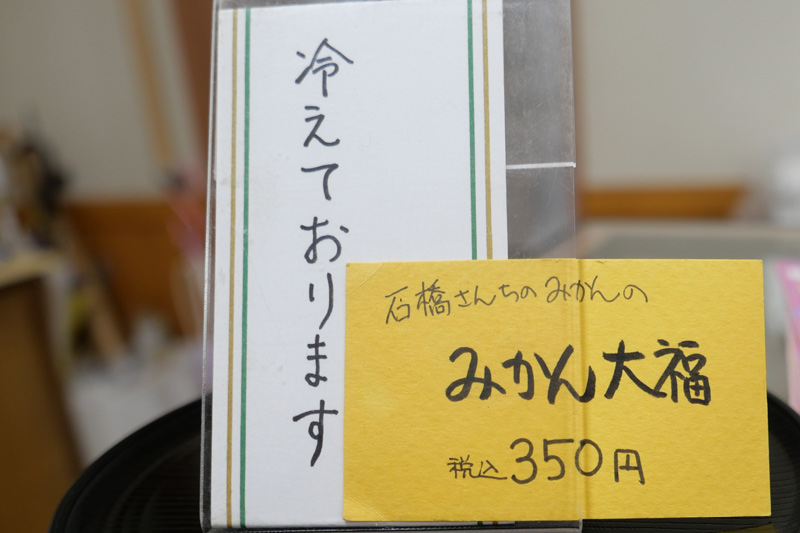 冷えております
石橋さんちのみかんの
みかん大福
税込350円